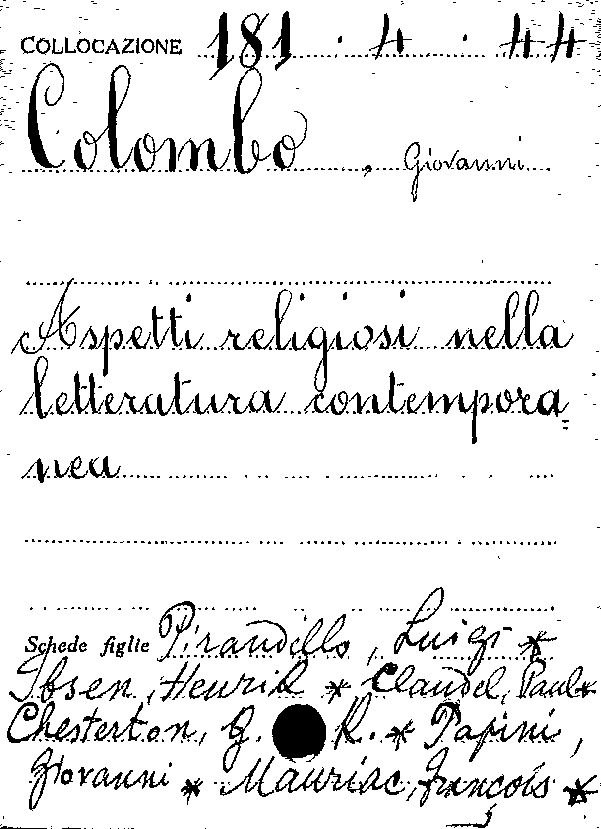 COLLOCAZIONE 181 . 4 . 44
Colombo, Giovanni
Aspetti religiosi nella
letteratura contempora=
nea
Schede figlie Pirandello, Luigi *
Ibsen, Henrik * Claudel, Paul *
Chesterton, G. K. * Papini,
Giovanni * Mauriac, François *